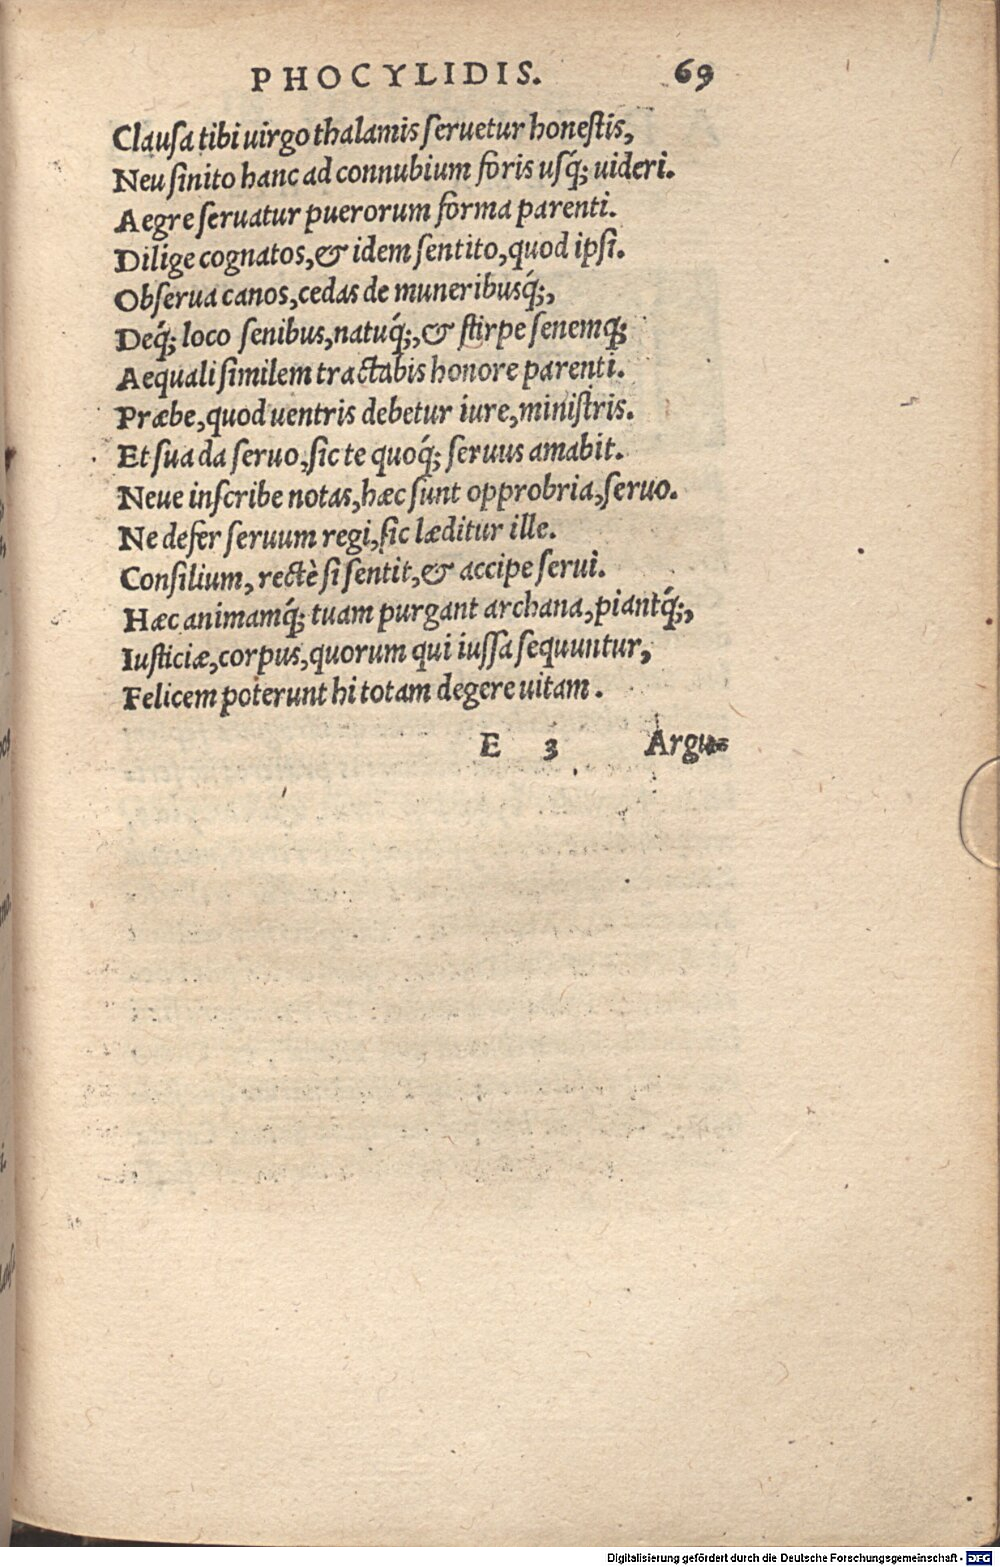 PHOCYLIDIS. 69
Clauſa tibi uirgo thalamis ſeruetur honeſtis,
Neu ſinito hanc ad connubium foris uſq́; uideri.
Aegre ſeruatur puerorum forma parenti.
Dilige cognatos, & idem ſentito, quod ipſi.
Obſerua canos, cedas de muneribusq́;,
Deq́; loco ſenibus, natuq́;, & ſtirpe ſenemq́;
Aequali ſimilem tractabis honore parenti.
Præbe, quod uentris debetur iure, miniſtris.
Et sua da ſeruo, ſic te quoq́; ſeruus amabit.
Neue inſcribe notas, hæc ſunt opprobria, ſeruo.
Ne defer ſeruum regi, ſic læditur ille.
Conſilium, rectè ſi ſentit, & accipe ſerui.
Hæc animamq́; tuam purgant archana, piantq́;,
Iuſticiæ, corpus, quorum qui iuſſa ſequuntur,
Felicem poterunt hi totam degere uitam.
E 3 Argu=
Digitalisierung gefördert durch die Deutsche Forschungsgemeinschaft - DFG